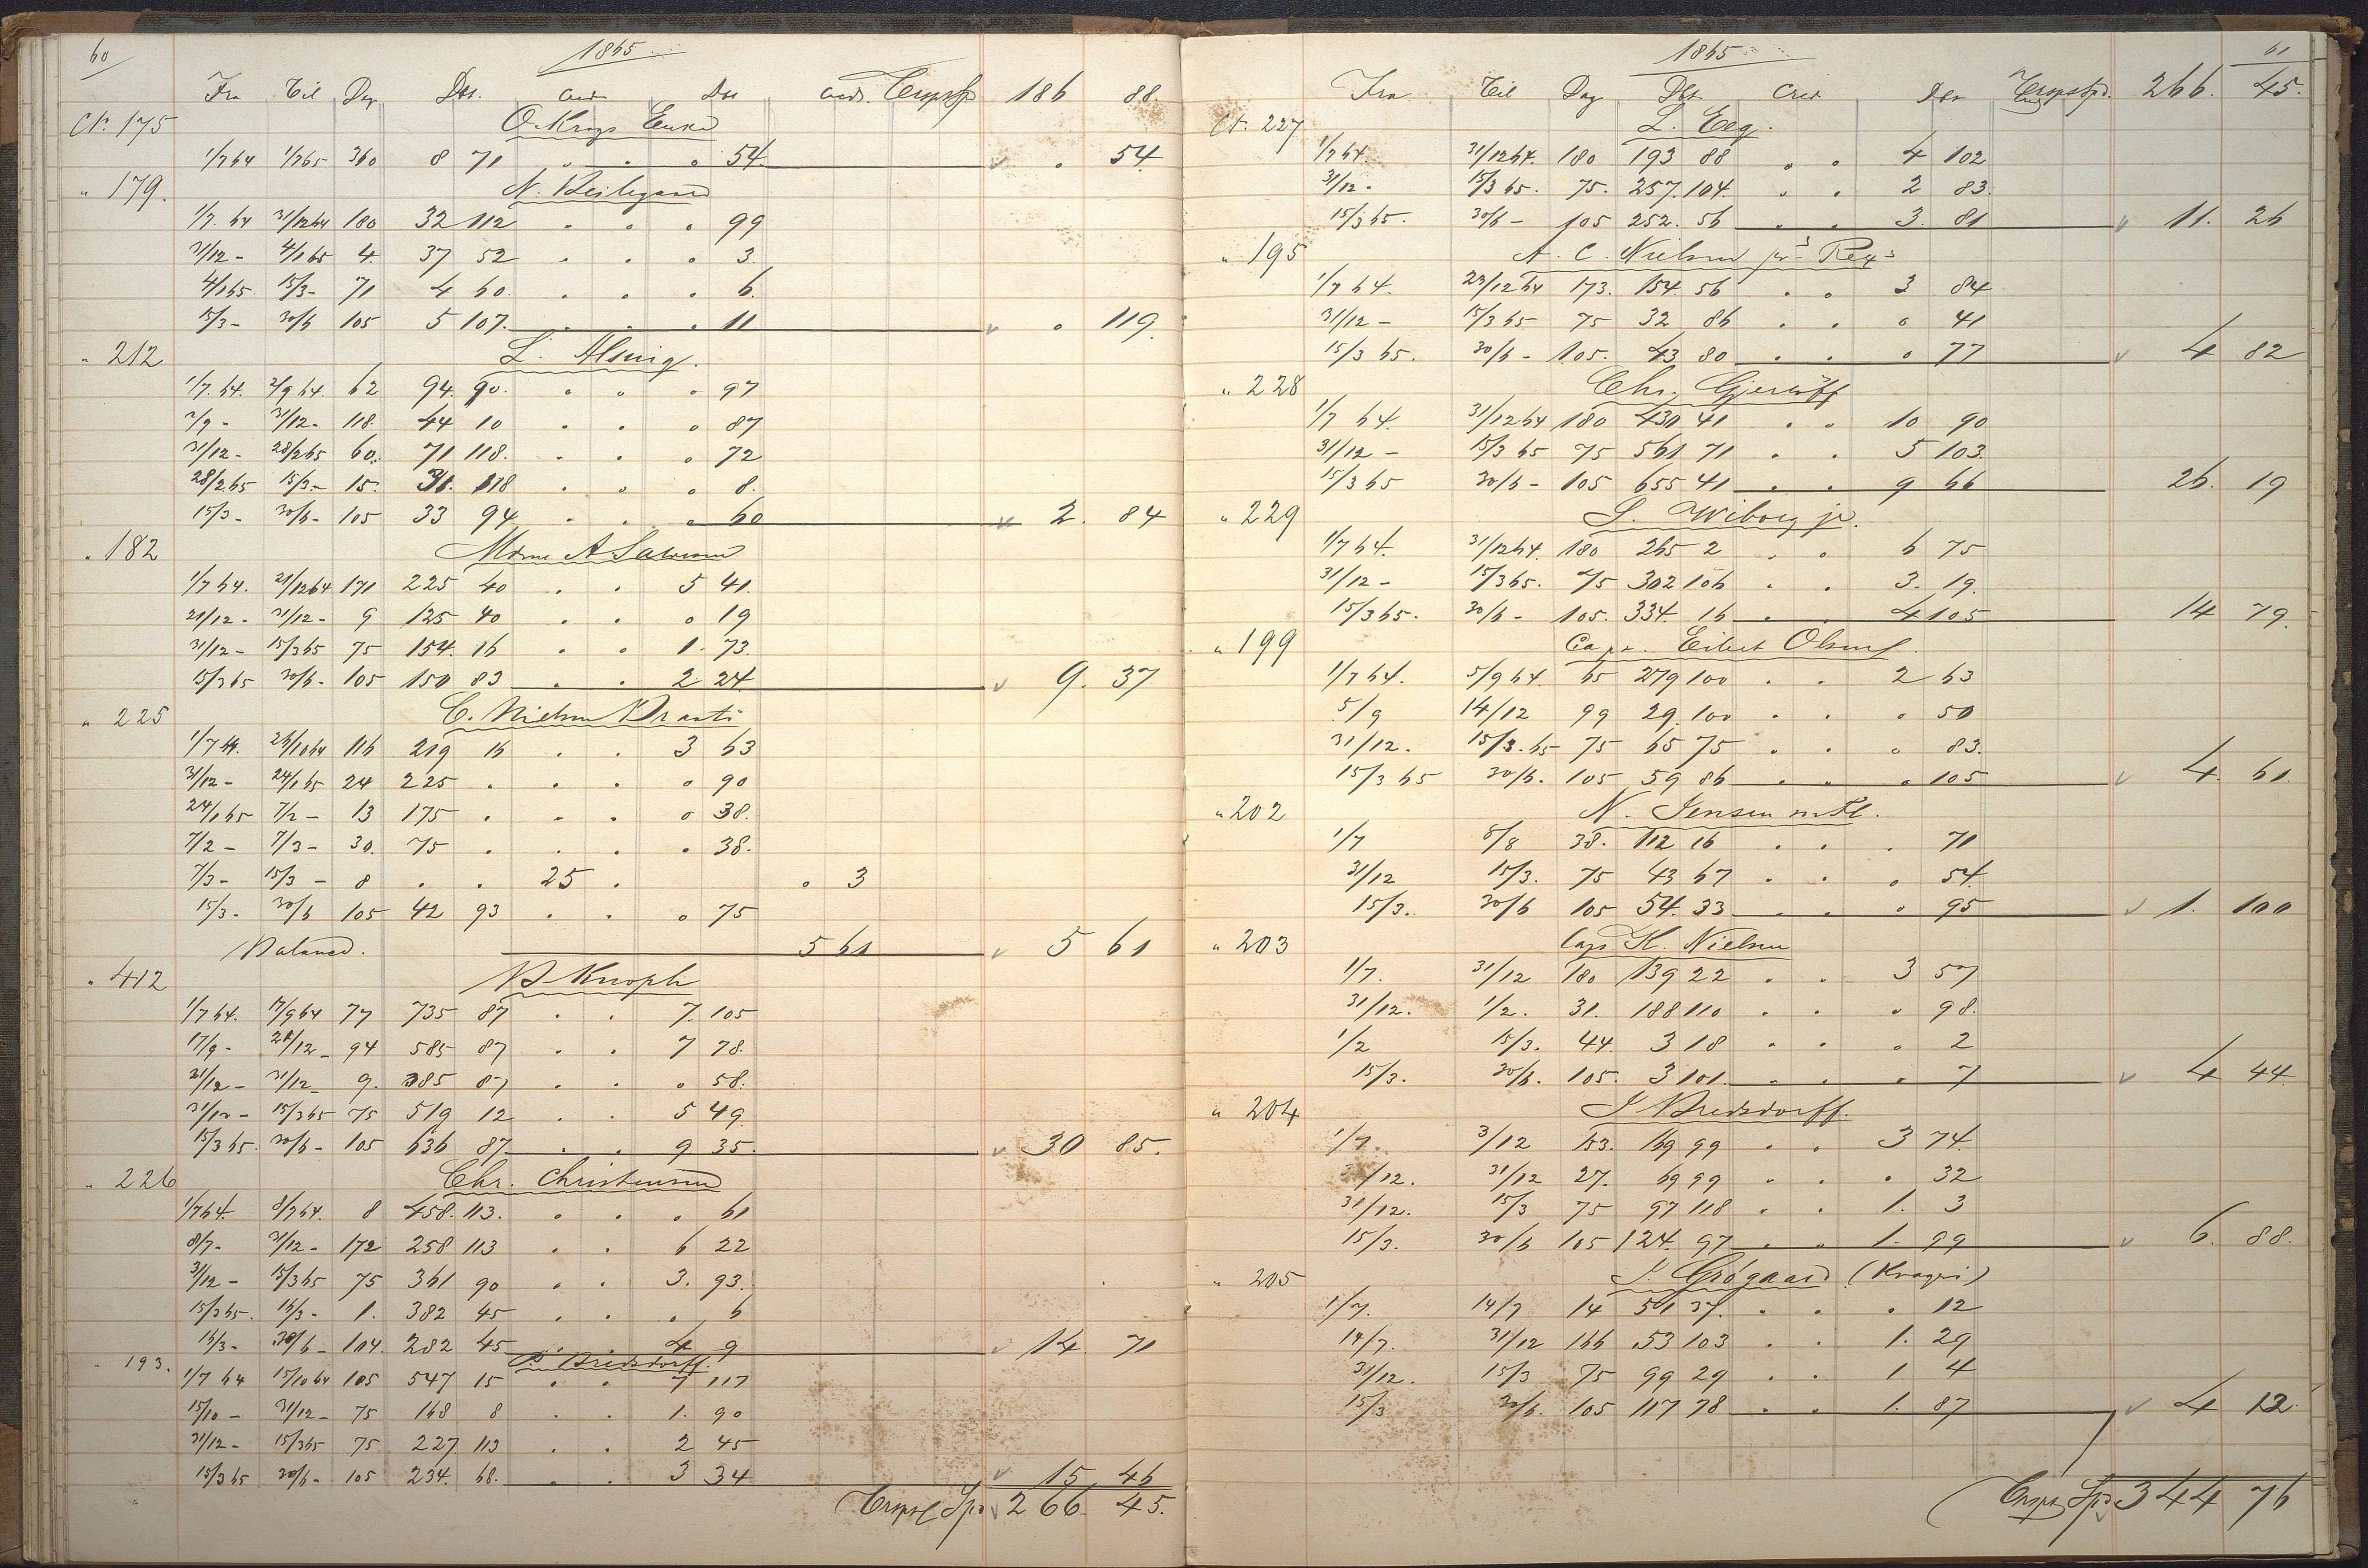 60
1865
Fra Til Dag Dbt. Cred Dbt Cred. Transp Sp 186 88.
Ct. 175 O. Krogs Enke
1/7 64 1/7 65 360 8 71 54. 54.
" 179.
1/7. 64 31/12 64 180 32 112 99
31/12 - 4/1 65 4. 37 52 3.
4/1 65. 15/3 - 71 4 60. 6.
15/3 - 30/6 105 5 107. 11 119.
" 212 L. Alsing.
1/7. 64. 2/9 64. 62 94. 90. 97
2/9 - 31/12 - 118. 44 10 87
31/12 - 28/2 65 60. 71 118. 72
28/2 65 15/3 - 15. 31. 118 8.
15/3 - 30/6 - 105 33 94 60 2. 84
" 182 Mdme A
1/7 64. 21/12 64 171 225 40 5 41.
21/12 - 31/12 - 9 125 40 19
31/12 - 15/3 65 75 154. 16 1. 73.
15/3 65 30/6 - 105 150 83 2 24. 9. 37
" 225 C. Nielsen
1/7 64. 26/10 64 116 219 16 3 63
31/12 - 24/1 65 24 225 . 90
24/1 65 7/2 - 13 175 . 38.
7/2 - 7/3 - 30. 75 . 38.
7/3 - 15/3 - 8 . . 25 . 3
15/3 - 30/6 105 42 93 75
Balance. 5 61 5 61
" 412 Knoph
1/7 64. 17/9 64 77 735 87 7. 105
17/9 - 21/12 - 94 585 87 7 78.
21/12 - 31/12 9. 385 87 58.
31/12 - 15/3 65 75 519 12 5 49.
15/3 65. 30/6 - 105 636 87 9 35. 30 85.
" 226 Chr. Christensen
1/7 64. 8/7 64. 8 458. 113. 61
8/7 - 31/12 - 172 258 113 6 22
31/12 - 15/3 65 75 361 90 3. 93.
15/3 65. 16/3 - 1. 382 45 6
16/3 - 30/6 - 104. 282 45 4 9 14 71
" 193. Bredsdorff.
1/7 64 15/10 64 105 547 15 7 117
15/10 - 31/12 - 75 168 8 1. 90
31/12 - 15/3 65 75 227 113 2 45
15/3 65 30/6 - 105 234. 68. 3 34 15 46
Transp Spd 266. 45.
61
1865
Fra Til Dag Dbt Cred Dbr Transp Spd. 266. 45.
Ct. 227 L. Eeg.
1/7 64. 31/12 64. 180 193 88 4 102
31/12 - 15/3 65. 75. 257. 104. 2 83.
15/3 65. 30/6 - 105 252. 56 3. 81 11. 26
" 195 A. C. Nielsen
1/7 64. 23/12 64 173. 154. 56 3 84
31/12 - 15/3 65 75 32 86 41
15/3 65. 30/6 - 105. 43 80 77 4 82
" 228 Chr. Gjerløff
1/7 64. 31/12 64 180 430 41 10 90
31/12 - 15/3 65 75 561 71 5 103.
15/3 65 30/6 - 105 655 41 9 66 26. 19
" 229 Wiborg jr.
1/7 64. 31/12 64. 180 265 2 6 75
31/12 - 15/3 65. 75 302 106 3. 19.
15/3 65. 30/6 - 105. 334. 16 4 105 14 79.
" 199 Capt. Eilert Olsen
1/7 64. 5/9 64. 65 279 100 2 63
5/9 14/12 99 29. 100 50
31/12. 15/3. 65 75 65 75 83.
15/3 65 30/6. 105 59 86 105 4. 61.
" 202 N. Jensen
1/7 8/8 38. 112 16 71
31/12 15/3. 75 43 67 54.
15/3. 30/6 105 54. 33 95 1. 100
" 203 Capt K. Nielsen
1/7. 31/12 180 139 22 3 57
31/12. 1/2. 31. 188 110 98.
1/2 15/3. 44. 3 18 2
15/3. 30/6. 105. 3 101. 7 4 44.
" 204 J Bredsdorff.
1/7. 3/12 153. 169 99 3 74.
3/12. 31/12 27. 69 99 32
31/12. 15/3 75 97 118 1. 3
15/3. 30/6 105 124. 97 1. 99 6. 88.
" 205 Grøgaard (Kragerø)
1/7. 14/7 14 51 37. 12
14/7. 31/12 166 53 103 1. 29
31/12. 15/3 75 99 29 1 4
15/3 30/6. 105 117 78 1. 87 4 12.
Transp Spd 344 76